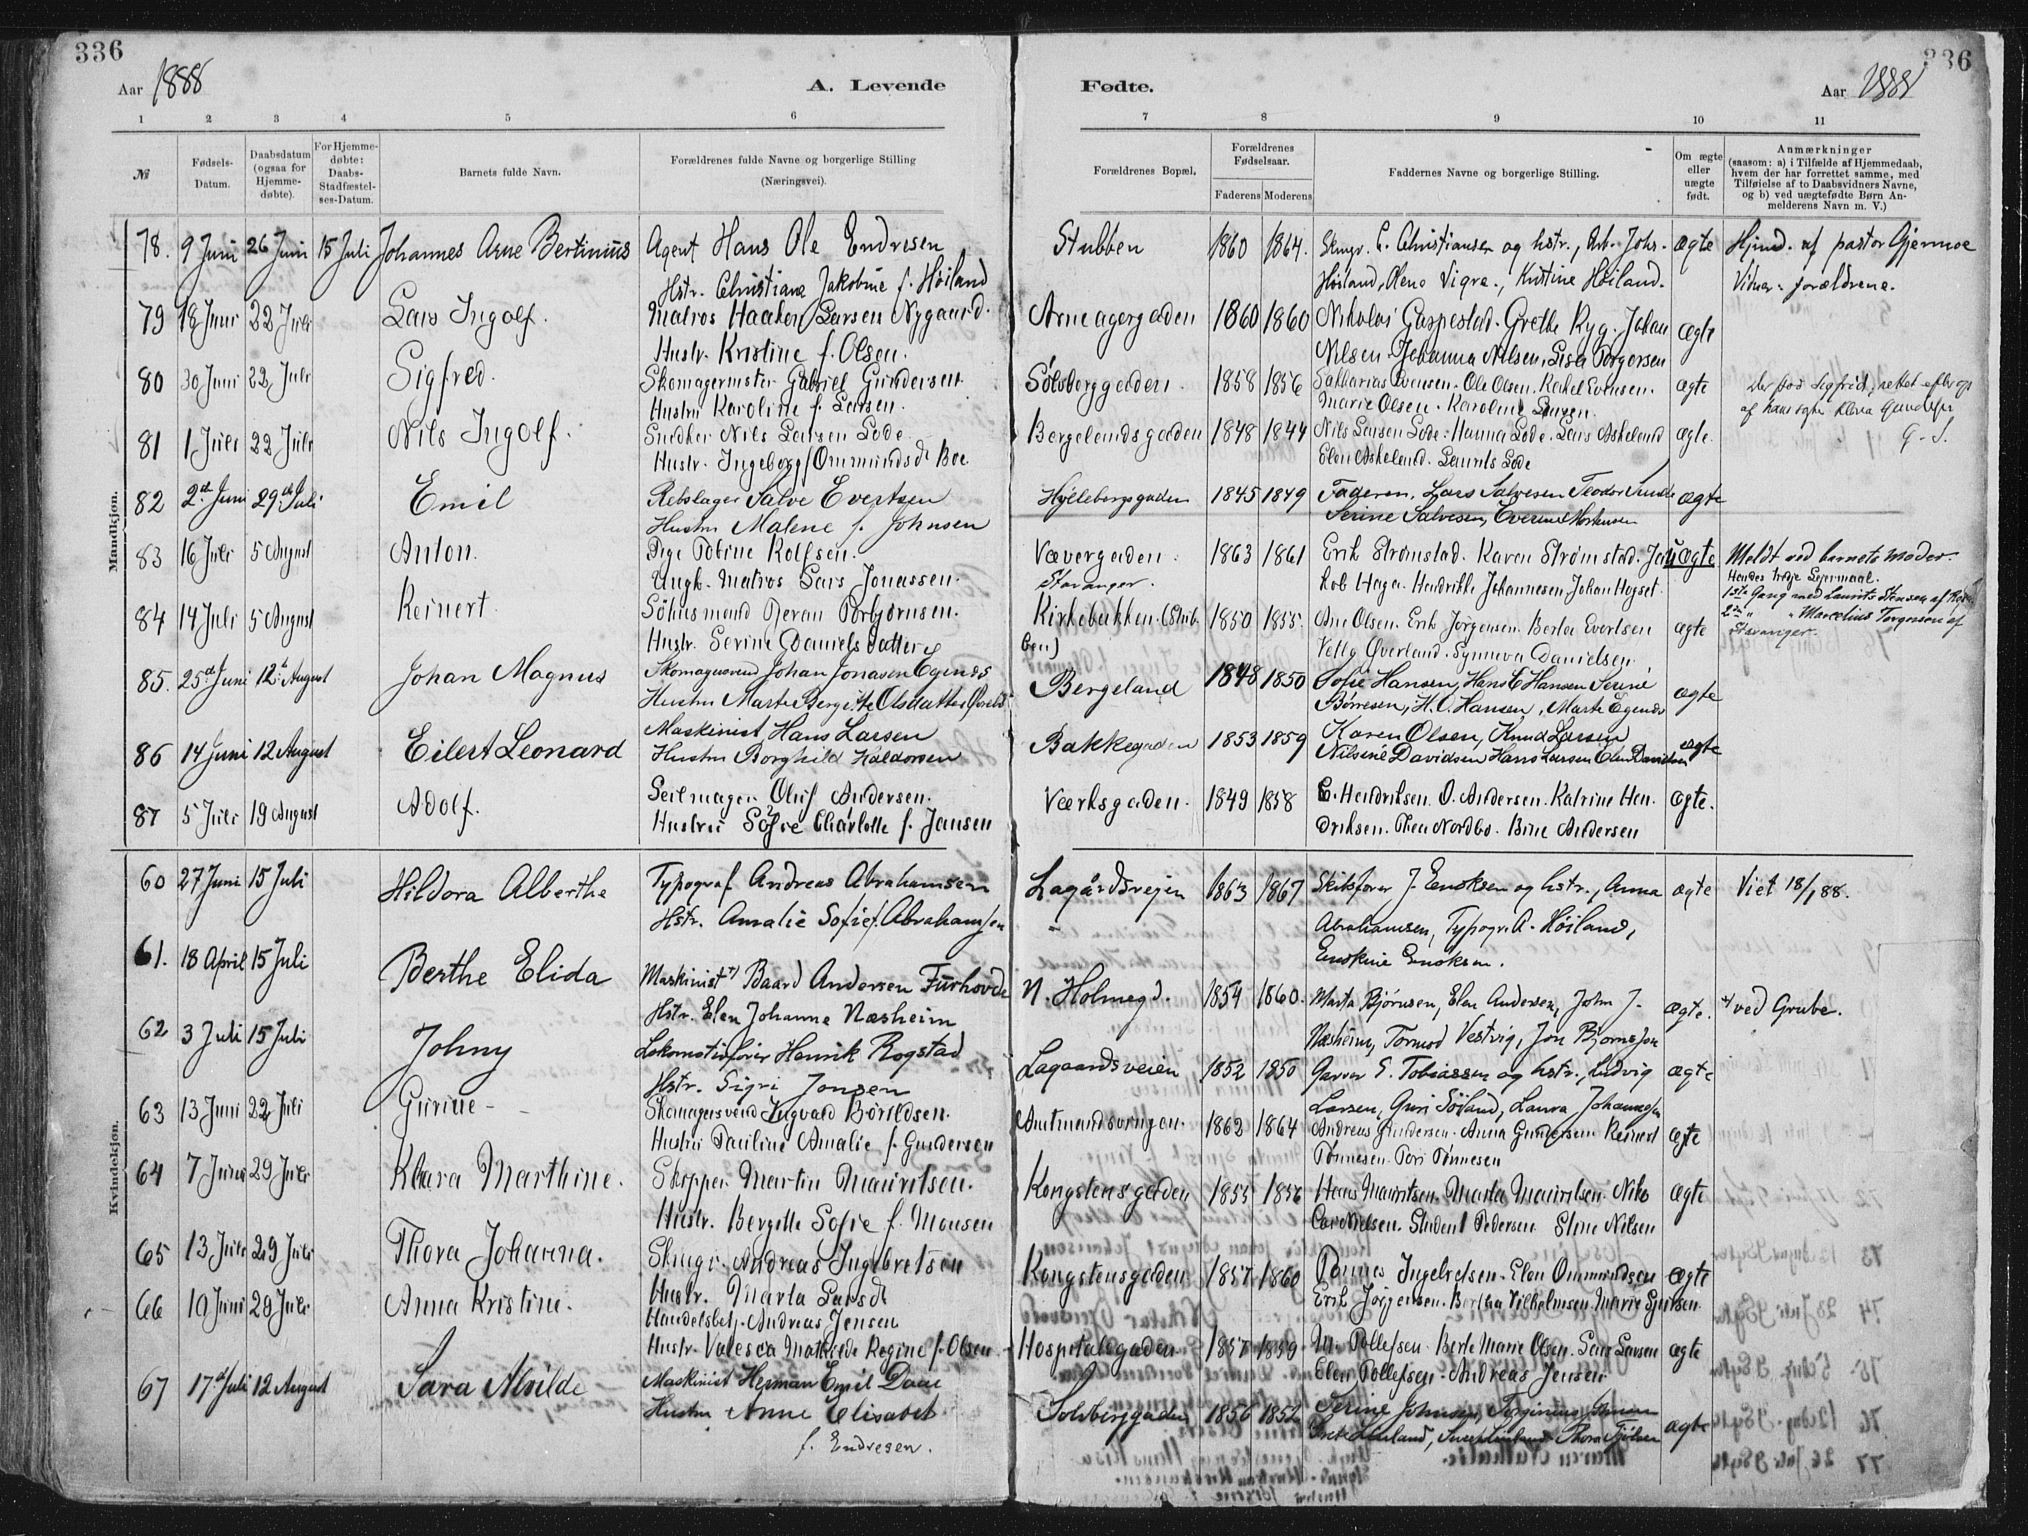 336
Aar 1888
A. Levende
1 2 3 4 5 6
№
Fødsels-
Datum.
Daabsdatum
(ogsaa for
Hjemme-
døbte).
For Hjemme-
døbte:
Daabs-
Stadfæstel-
ses-Datum.
Barnets fulde Navn.
Forældrenes fulde Navne og borgerlige Stilling
(Næringsvei).
Mandkjøn.
78. 9 Juni 26 Juni 15 Juli Johannes Arne Bertinius Agent Hans Ole Endresen
Hstr. Christiane Jakobine f. Høiland
79 18 Juni 22 Juli Lars Ingolf. Matros Haaken Larsen Nygaard.
Hustr. Kristine f. Olsen.
80 30 Juni 22 Juli Sigfred. Skomagermster Gabriel Gundersen
Hustru Karoline f. Larsen.
81 1 Juli 22 Juli Nils Ingolf. Snedker Nils Larsen Lode
Hustr. Ingeborg Ommundsd. Boe
82 2den Juni 29de Juli Emil Rebslager Salve Evertsen
Hustru Malene f. Johnsen
83 16 Juli 5 August Anton. Pige Tobine Rolfsen.
Ungk. Matros Lars Jonassen.
84 14 Juli 5 August Reinert. Torbjørnsen.
Hustr. Serine Danielsdatter
85. 25de Juni 12te August Johan Magnus Skomagersvend Johan Jonasen Egenes
Hustru Marte Bergitte Olsdatter
86 14 Juni 12 August Eilert Leonard Maskinist Hans Larsen
Hustru Borghild Haldorsen
87 5 Juli 19 August Adolf. Seilmager Oluf Andersen.
Hustru Sofie Charlotte f. Jansen
Kvindekjøn.
60 27 Juni 15 Juli Hildora Alberthe Typograf Andreas Abrahamsen
Hstr. Amalie Sofie f. Abrahamsen
61. 18 April 15 Juli Berthe Elida Maskinist *) Baard Andersen Furhovde
Hstr. Elen Johanne Næsheim
62 3 Juli 15 Juli Johny Lokomotivfører Henrik Rogstad
Hstr. Sigri Jonsen
63 13 Juni 22 Juli Gurine - - Skomagersvend Ingvald Børildsen.
Hustru Pauline Amalie f. Gundersen
64 7 Juni 29 Juli Klara Marthine. Skipper Martin Mauritsen.
Hustr. Bergitte Sofie f. Monsen
65 13 Juli 29 Juli Thora Johanna. Skmgr. Andreas Ingebretsen
Hustr. Marta Larsdt
66 10 Juni 29 Juli Anna Kristine. Handelsbetj. Andreas Jensen
Hustr. Valesca Mathilde Regine f. Olsen
67 17de Juli 12 August Sara Alvilde Maskinist Herman Emil Daae
Hustru Anne Elisabet
f. Endresen.
336
Fødte.
Aar 1888
7 8 9 10 11
Forældrenes Bopæl.
Forældrenes
Fødselsaar.
Faderens Moderens
Faddernes Navne og borgerlige Stilling.
Om ægte
eller
uægte
født.
Anmærkninger
(saasom: a) i Tilfælde af Hjemmedaab,
hvem der har forrettet samme, med
Tilføielse af to Daabsvidners Navne,
og b) ved uægtefødte Børn An-
melderens Navn m. V.)
Stubben 1860 1864. Skmgr. C. Christiansen og hstr., Arb. Johs. ægte Hjmd. af pastor Gjermoe
Høiland, Olena Vigre., Kristine Høiland. Vidner: forældrene.
Arneagergaden 1860 1860 Nikolai Gaspestad. Grethe Ryg. Johan ægte
Nilsen. Johanna Nilsen, Lisa Torgersen
Sølvberggaden. 1858 1856 Sakkarias Evensen. Ole Olsen. Rakel Evensen. ægte
Marie Olsen. Karoline Larsen.
Bergelandsgaden 1848 1844 Nils Larsen Lode. Hanna Lode. Lars Askeland ægte. G. S.
Elen Askeland. Laurits Lode
Hyllebergsgaden 1845 1849 Faderen. Lars Salvesen Teodor Sunde ægte
Serine Salvesen, Everine Mortensen
Vævergaden. 1863 1861 Erik Strømstad. Karen Strømstad. Ja- uægte Meldt ved barnets moder.
Stavanger. kob Haga. Hendrikke Johannesen. Johan Hogset. Hendes tredje Leiermaal.
1ste Gang med Laurits Stensen af
Kirkebakken. (Stub- 1850 1855. Ane Olsen. Erik Jørgensen. Berta Evertsen ægte 2den " " Marcelius Torgersen af
ben) Øverland. Synneva Danielsen. Stavanger.
Bergeland 1848 1850 Sofie Hansen, Hans C Hansen Serine ægte
Børresen, H. C. Hansen, Marte Egenes
Bakkegaden 1853 1859 Karen Olsen, Knud Larsen ægte
Nilsine Davidsen Hans Larsen Elen Davidsen
Værksgaden. 1849 1858 E. Hendriksen. O. Andersen. Katrine Hen- ægte.
driksen. Thea Nordbo. Bine Andersen
Lagårdsvejen 1863 1867 Skibsfører J. Enoksen og hstr., Anna ægte Viet 18/1 88.
Abrahamsen, Typogr. A. Høiland,
Enokine Enoksen.
N. Holmegd. 1854 1860. Marta Bjørnsen, Elen Andersen, John J. ægte. *) ved Grube.
Næsheim, Tormod Vestvig, Jon Bjørnsson
Lagaardsveien 1852 1850 Garver S. Tobiassen og hstr., Ludvig ægte
Larsen, Guri Soiland, Laura Johannesen
Amtmandsvingen. 1862 1864 Andreas Gundersen. Anna Gundersen Reinert ægte
Tønnesen. Tori Tønnesen
Kongstensgaden 1855 1856 Hans Mauritsen. Marta Mauritsen. Niko ægte
Student Pedersen Stine Nilsen
Kongstensgaden 1857 1860 Tønnes Ingebretsen. Elen Ommundsen ægte
Erik Jørgensen. Bertha Vilhelmsen.
Hospitalsgaden 1857 1859 M. Tollefsen. Berte Marie Olsen. Larsen ægte
Elen Tollefsen. Andreas Jensen
Solvberggaden 1856 1852 Serine Johnsen, ægte